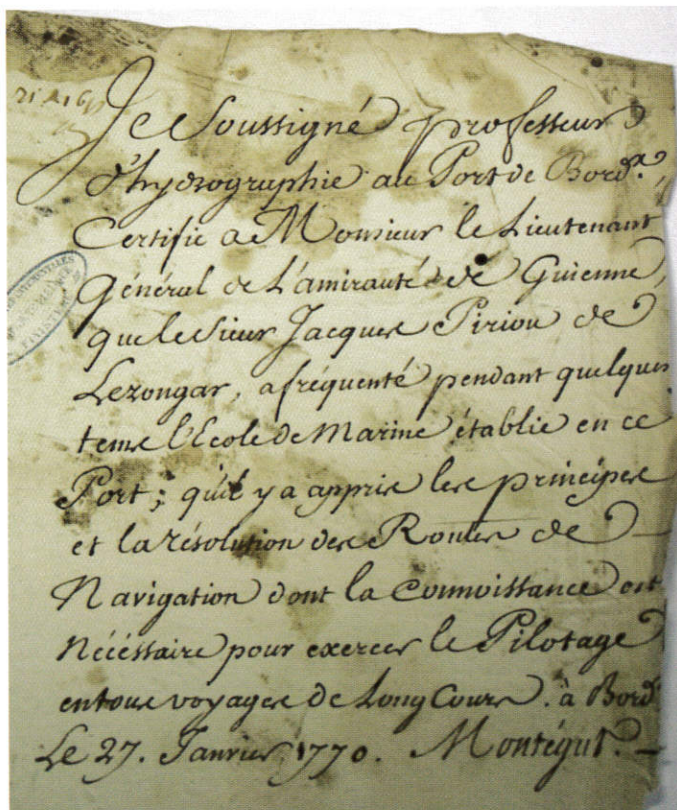 Je Soussigné professeur
d'hydrographie au Port de Bord.x,
Certifie a Monsieur le Lieutenant
général de L'amirauté de Guienne,
que le Sieur Jacques Piriou de
Lezongar, a fréquenté pendant quelques
tems l'Ecole de Marine établie en ce
Port; qu'il y a appris les principes
et la résolution des Routes de
Navigation dont la connoissance est
Nécéssaire pour exercer le Pilotage
en tous voyages de Long Cours. à Bord.
Le 27. Janvier 1770. Montégut.